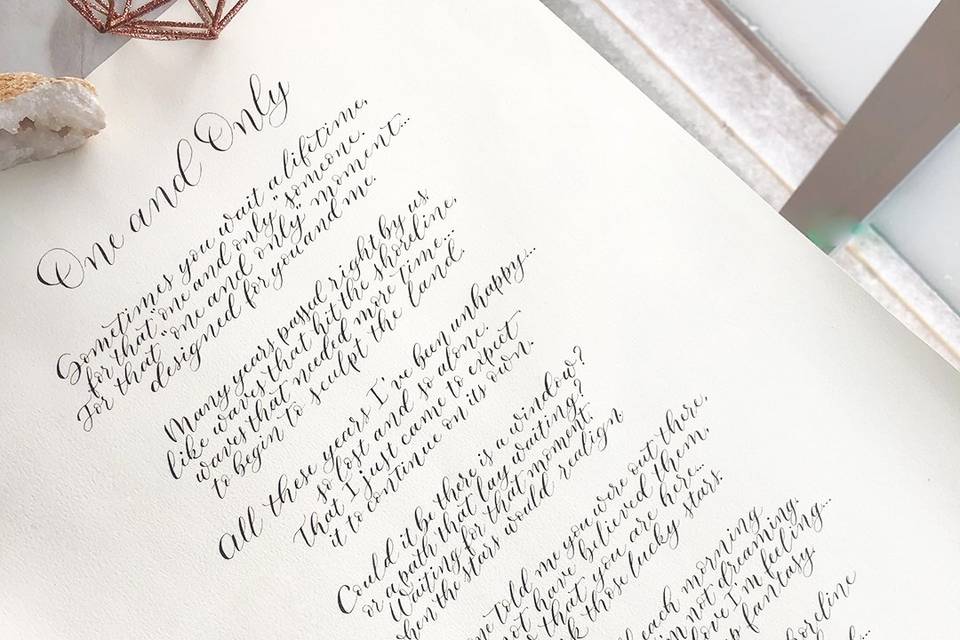 One and Only
Sometimes you wait a lifetime,
for that "one and only" someone.
For that "one and only" moment...
designed for you and me.
Many years passed right by us
like waves that hit the shoreline,
waves that needed more time...
to begin to sculpt the land.
All these years I've been unhappy...
so lost and so alone.
That I just came to expect
it to continue on its own.
Could it be there is a window?
or a path that lay waiting?
Waiting for that moment,
when the stars would realign
told me you were out there,
not have believed them,
that you are here...
those lucky stars.
each morning
I'm not dreaming.
love I'm feeling...
fantasy
shoreline